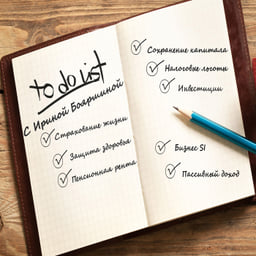 to do list
С Ириной Боаршиной
Страхование жизни
Защита здоровья
Пенсионная рента
Сохранение капитала
Налоговые льготы
Инвестиции
Бизнес SI
Пассивный доход